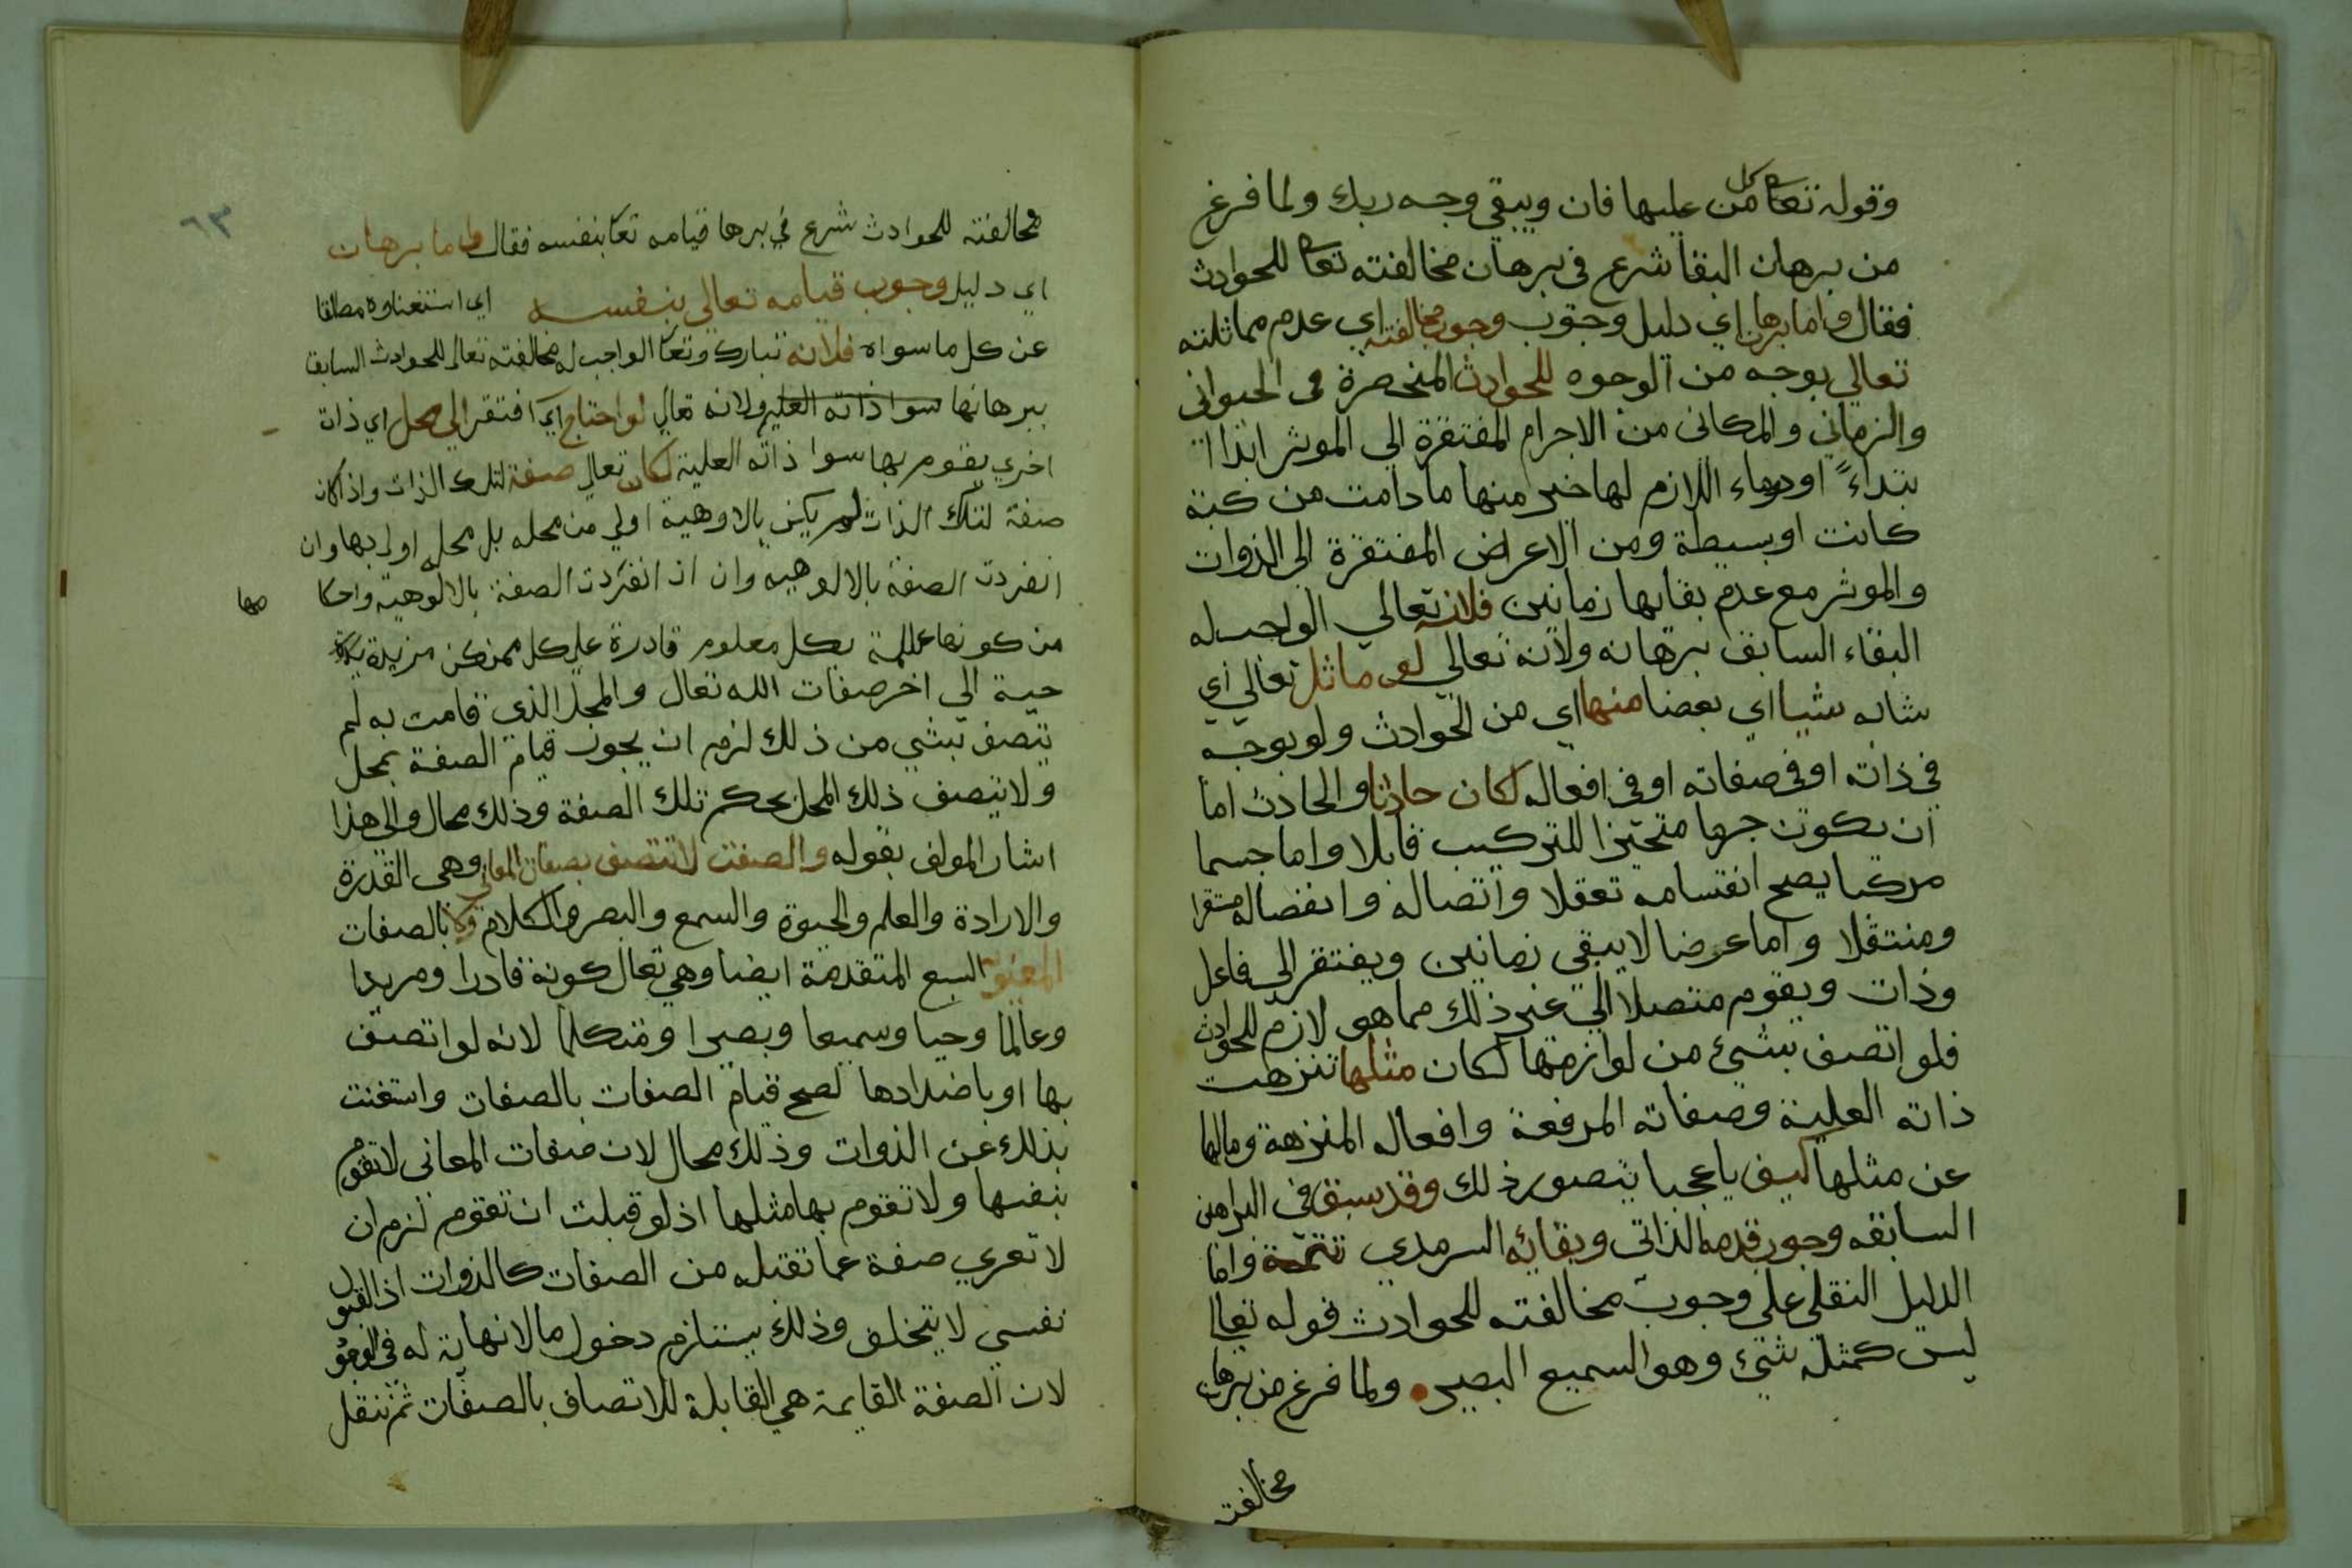 وقوله تعا كل من عليها فان ويبقي وجه ربك ولما فرغ
من برهان البقا شرع في برهان مخالفته تعا للحوادث
فقال واما برهان اي دليل وجوب وجوب مخالفته اي عدم مماثلته
تعالي بوجه من الوجوه للحوادث المنحصرة في الحيواني
والزماني والمكاني من الاجرام المفتقرة الي الموثر ابدا ا
بتداءً او دوماء اللازم لها خبر منها ما دامت من كبة
كانت او بسيطة ومن الاعراض المفتقرة الي الذوات
والموثر مع عدم بقايها زمانين فلانه تعالي الواجب له
البقاء السابق برهانه ولانه تعالي لو ماثل تعالي اي
شابه شيا اي بعضا منها اي من الحوادث ولو بوجه
في ذاته او في صفاته او في افعاله لكان حادثا والحادث اما
ان يكون جرما متحيزا للتركيب قابلا واما جسما
مركبا يصح انقسامه تعقلا واتصاله وانفصاله
ومنتقلا واما عرضا لا يبقي زمانين ويفتقر الي فاعل
وذات ويقوم متصلا الي غير ذلك مما هو لازم للحوادث
فلو اتصف بشيئ من لوازمها لكان مثلها تنزهت
ذاته العلية وصفاته المرفعة وافعاله المنزهة ومالها
عن مثلها كيف يا عجبا يتصور ذلك وقد سبق في البراهن
السابقه وجوب قدمه الذاتي وبقائه السرمدي تتمة واما
الدليل النقلي علي وجوب مخالفته للحوادث قوله تعالا
ليس كمثله شيئ وهو السميع البصير ولما فرغ من برهان
مخالفته
٦٣
مخالفته للحوادث شرع في برها قيامه تعا بنفسه فقال واما برهان
اي دليل وجوب قيامه تعالي بنفسه اي استغناوه مطلقا
عن كل ما سواه فلانه تبارك وتعا الواجب له مخالفته تعال للحوادث السابق
ببرهانها سوا ذاته العليه ولانه تعالي لو احتاج اي افتقر الي محل اي ذات
اخري يقوم بها سوا ذاته العلية لكان تعالي صفة لتلك الذات واذا كان
صفة لتلك الذات لم يكن بالاوهية اولي من محله بل محله اولي بها وان
انفردت الصفة بالالوهيه وان ان انفردت الصفة بالالوهية واحكا
مها
من كونها عالمة بكل معلوم قادرة علي كل ممكن مزيدة
حية الي اخر صفات الله تعال والمحل الذي قامت به لم
يتصف بشي من ذلك لزم ان يجوز قيام الصفة بمحل
ولا يتصف ذلك المحل بحكم تلك الصفة وذلك محال والي هذا
اشار المولف بقوله والصفة لا تتصف بصفات المعاني وهي القدرة
والارادة والعلم والحيوة والسمع والبصر والكلام ولا بالصفات
المعنوية السبع المتقدمة ايضا وهي تعال كونه قادرا ومريدا
وعالما وحيا وسميعا وبصيرا ومتكلما لانه لو اتصف
بها او باضدادها لصح قيام الصفات بالصفات واستغنت
بذلك عن الذوات وذلك محال لان صفات المعاني لا تقوم
بنفسها ولا تقوم بها مثلها اذ لو قبلت ان تقوم لزم ان
لا تعري صفة عما تقبله من الصفات كالذوات اذ القبول
نفسي لا يتخلف وذلك يستلزم دخول ما لا نهاية له في الوجود
لان الصفة القايمة هي القابلة للاتصاف بالصفات ثم ننقل